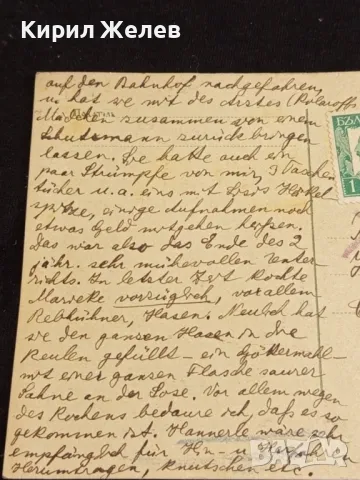 Кирил Желев
auf den Bahnhof nachgefahren,
u. hat sie mit des Arztes (Polaroffs
Mädchen zusammen von einem
Schutzmann zurück bringen
lassen. Sie hatte auch ein
paar Strümpfe von mir, 3 Taschen
tücher u. a. eins mit Deis Häkel
spitze, einige Aufnahmen noch
etwas Geld mitgehen heissen.
Das war also das Ende des 2
jähr. sehr mühevollen Unter-
richts. In letzter Zeit kochte
Marveke vorzüglich, vor allem
Rebhühner, Hasen. Neulich hat
sie den ganzen Hasen in die
Keulen gefüllt - ein Göttermahl
mit einer ganzen Flasche saurer
Sahne an der Sose. Vor allem wegen
des Kochens bedaure ich, daß es so
gekommen ist. Hannerle wäre sehr
empfänglich für Hin- u.
Herumtragen, knutschen etc.
БЪЛ
1
bazar.bg